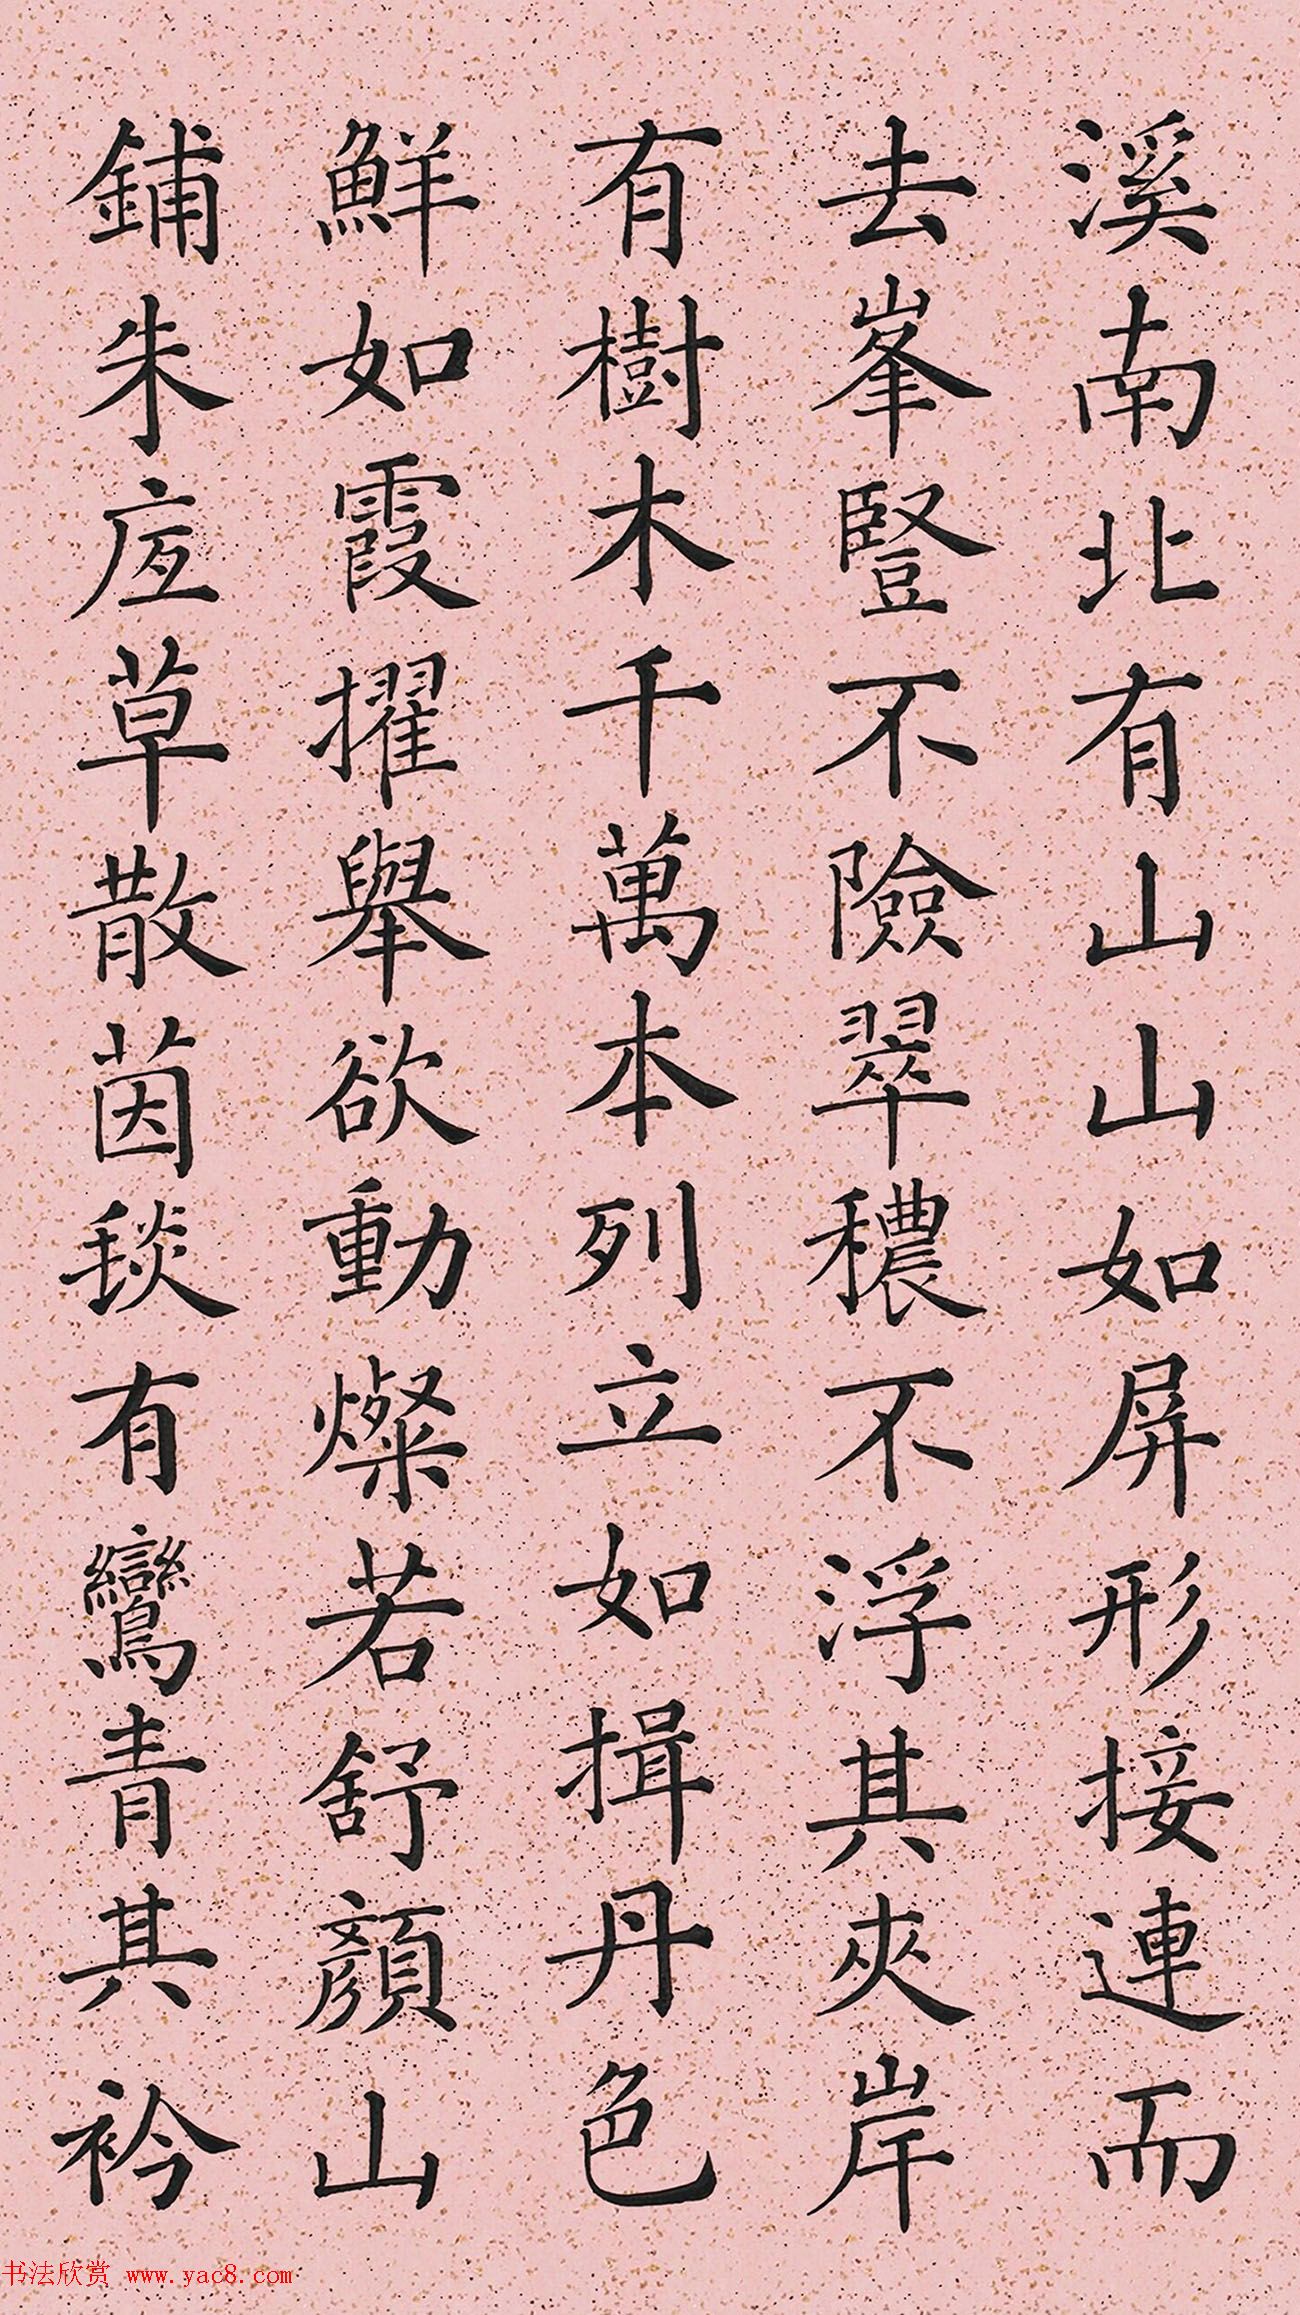 溪南北有山山如屏形接連而
去峯豎不險翠穠不浮其夾岸
有樹木千萬本列立如揖丹色
鮮如霞擢舉欲動燦若舒顏山
鋪朱底草散茵毯有鸞青其衿
书法欣赏 www.yac8.com